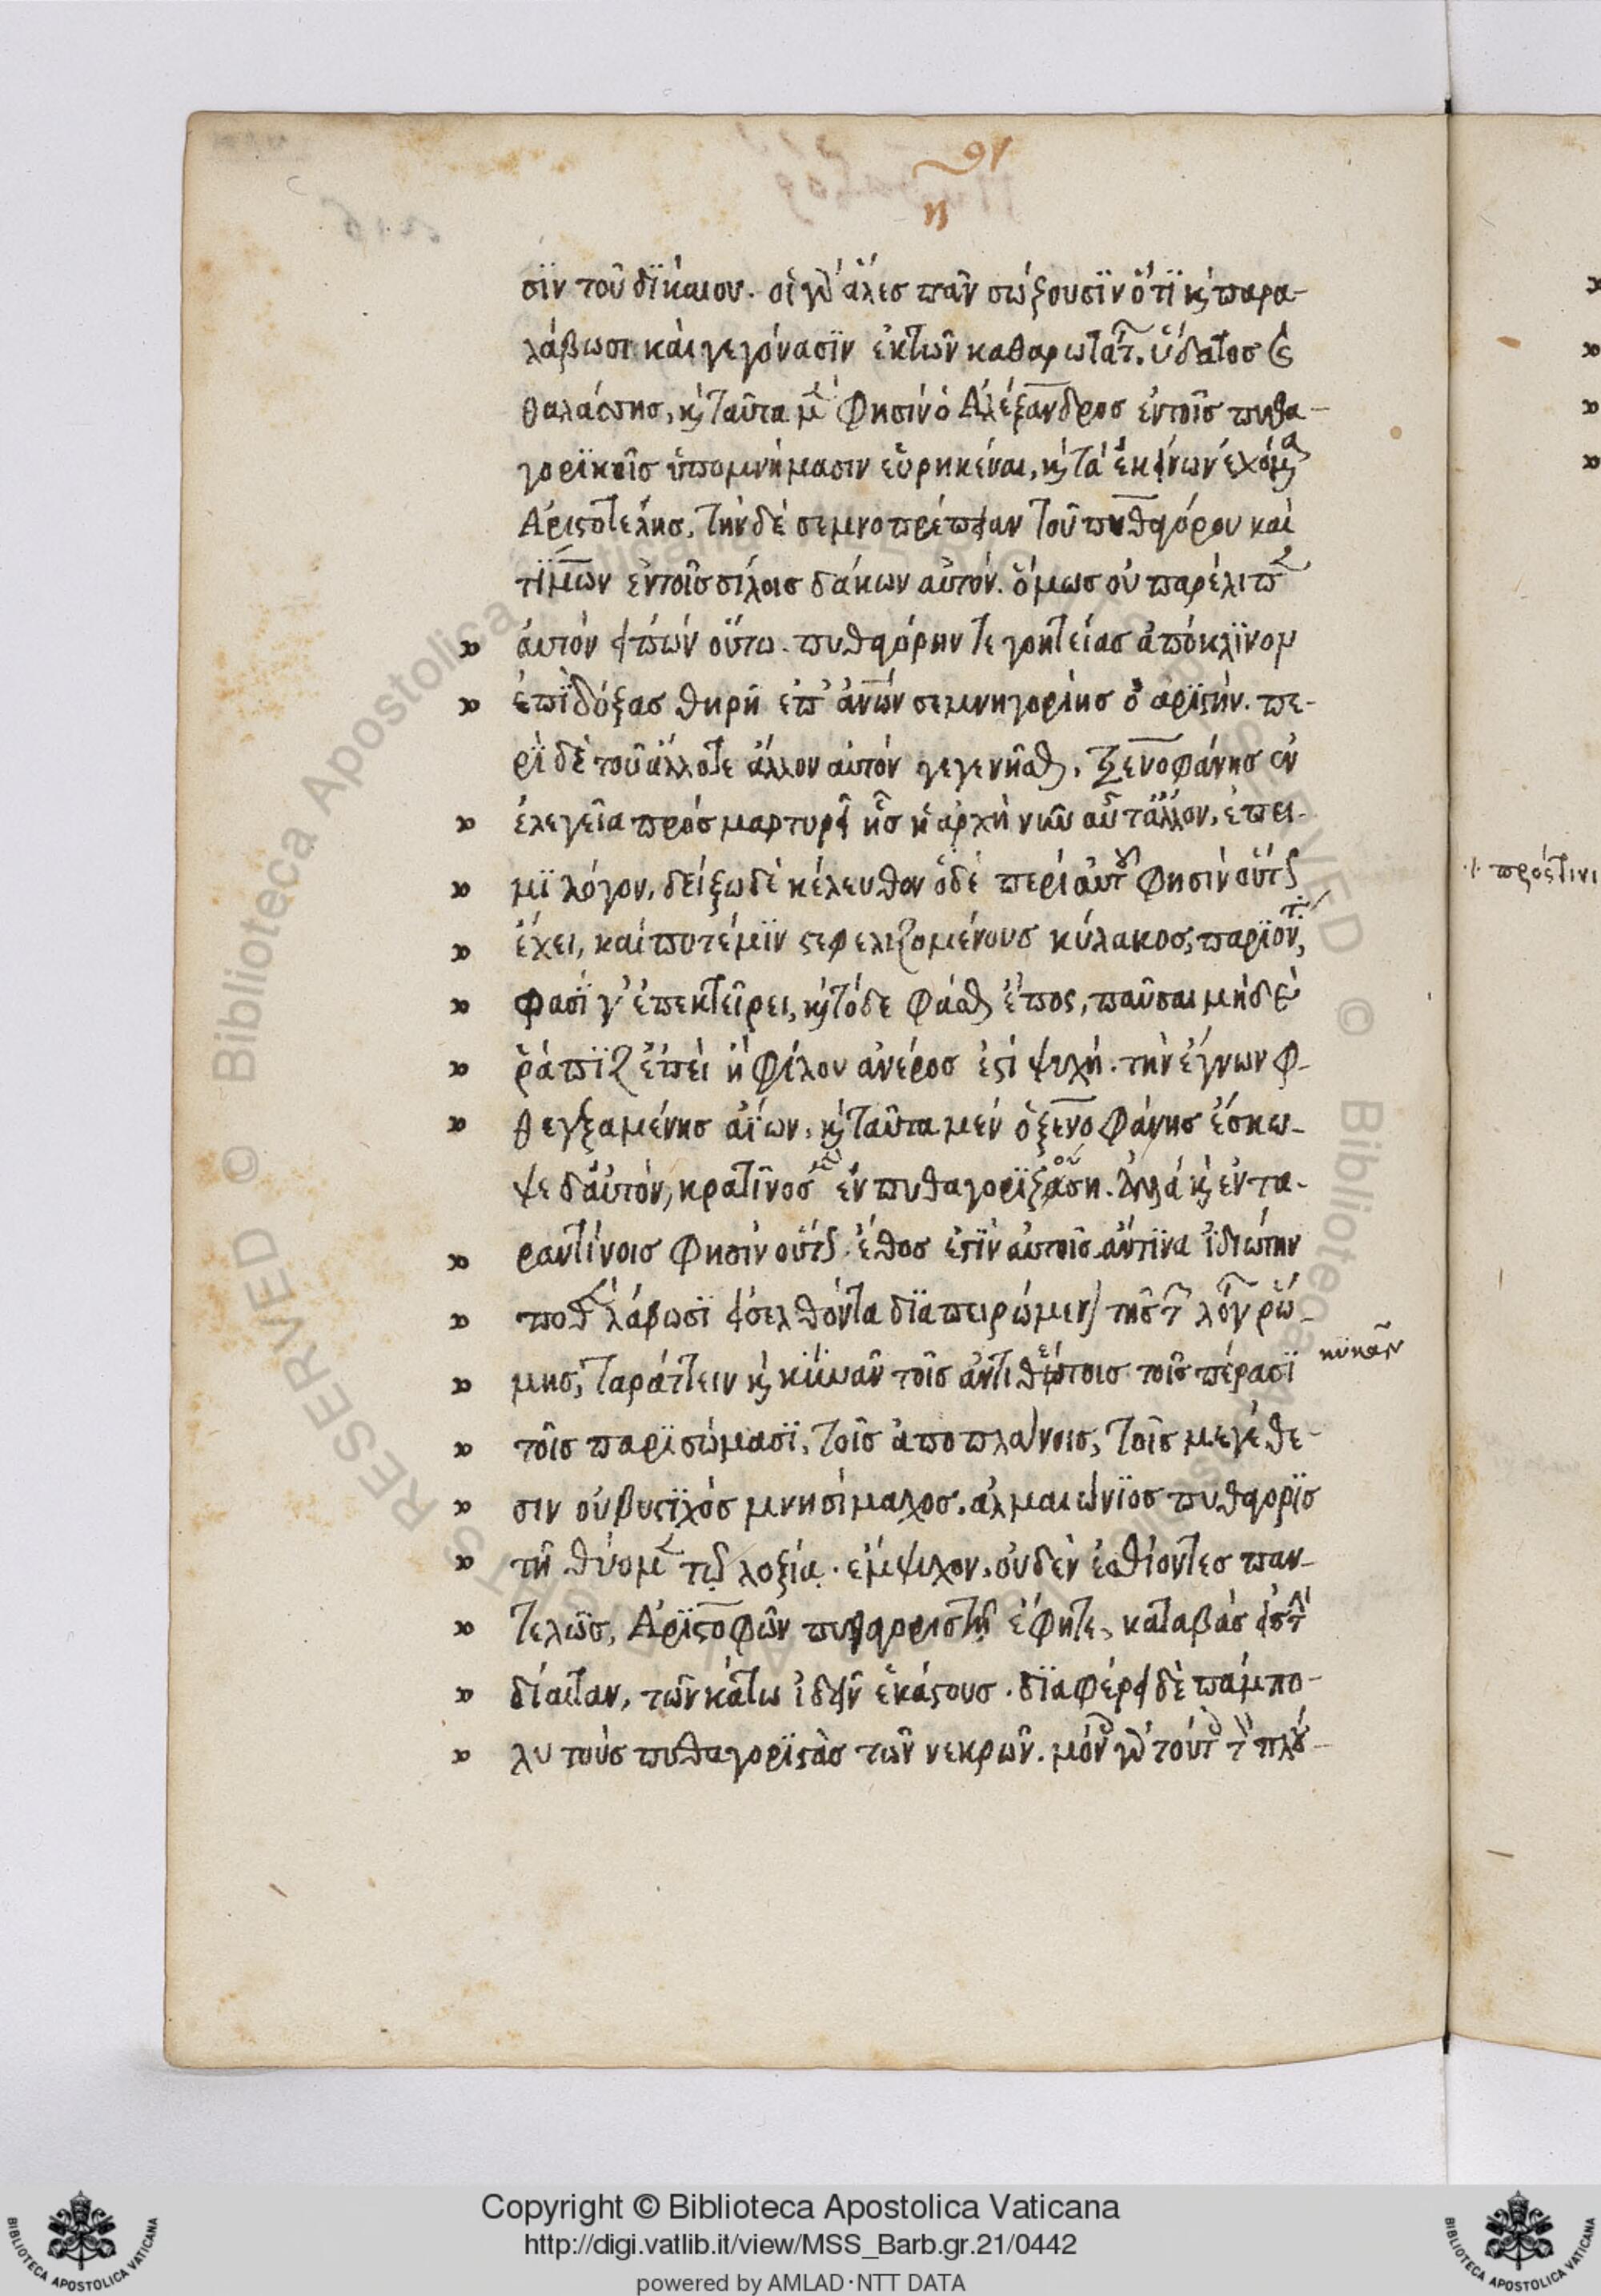 η
σϊν τοῦ δϊκάιου. οἱ γὰρ ἅλεσ πᾶν σώξουσϊν ὅτϊ καὶ παρα-
λάβωσι καὶ γεγόνασϊν ἐκτῶν καθαρωτάτ. ὕδατοσ καὶ
θαλάσσησ, καὶ ταῦτα μὲν φησὶν ὁ Ἀλέξανδροσ ἐντοῖσ πυθα-
γορϊκοῖσ ὑπομνήμασιν εὑρηκέναι, καὶ τὰ ἐκείνων ἐχόμενα
Ἀριστοτέλησ, τὴν δὲ σεμνοπρέπειαν τοῦ πυθαγόρου καὶ
τϊμων ἐντοῖσ σίλοισ δάκων αὐτόν. ὅμωσ οὐ παρέλιπεν
ἀυτόν εἰπών οὕτω. πυθαγόρην τε γοητείασ ἀπόκλϊνομ
ἐπϊ δόξασ θηρῆ ἐπ' ἀνων σεμνηγορίησ ὀ αρϊστήν. πε-
ρὶ δὲ τοῦ ἄλλοτε ἄλλον αὐτόν γεγενῆσθαι, Ξενοφάνησ ἐν
ἐλεγεῖα πρόσμαρτυρεῖ ἧσ ἡ ἀρχὴ νῦν αὖτ ἄλλον, ἔπει-
μϊ λόγον, δείξω δὲ κέλευθον ὅδὲ περί ἀυτοῦ φησὶν οὕτως
ἔχει, καί ποτέ μϊν στεφελιζομένουσ κύλακοσ, παρϊόντ
φασϊ γ' ἐπεκτεῖρει, καὶ τόδε φάσθαι ἔπος, παῦσαι μήδε
ῥάπϊζ ἐπεὶ ἡ φίλου ἀνέροσ ἐστί ψυχή. τὴν ἔγνων φ-
θεγξαμένησ αϊων, καὶ ταῦτα μὲν ὁ ξενοφάνησ ἔσκω-
ψε δ' αὐτόν, κρατῖνοσ ἐν πυθαγορϊξούση. ἀλλά καὶ ἐν τα-
ραντίνοισ φησὶν οὕτως. ἔθοσ ἐστϊν αὐτοῖσ ἄντϊνα ἰδιώτην
ποθεν λάβωσϊ εἰσελθόντα δϊαπειρώμεν τῆσ τῶν λόγων ῥώ-
μησ, ταράττειν καὶ κϋκᾶν τοῖσ ἀντιθέτοισ τοῖσ πέρασϊ
κϋκᾶν
τοῖσ παρϊσώμασϊ, τοῖσ ἀποπλάνοισ, τοῖσ μεγέθε-
σιν οὐβυστϊχόσ μνησίμαχοσ. ἀλμαιώνϊοσ πυθαγορϊσ
τῆ θύομεν τῷ λοξίᾳ. ἔμψυχον, οὐδὲν ἐσθίοντεσ παν-
τελῶσ, Ἀρϊστοφῶν πυθαγοριστῇ ἔφητε, καταβάσ εἰς τὴν
δίαιταν, τῶν κάτω ἰδεῖν ἑκάστουσ. δϊαφέρει δὲ πάμπο-
λυ τοὺσ πυθαγορϊστὰσ τῶν νεκρῶν. μόν γὰρ τούτ τ πλού-
·/· πρός τινι
Copyright © Biblioteca Apostolica Vaticana
http://digi.vatlib.it/view/MSS_Barb.gr.21/0442
powered by AMLAD·NTT DATA
BIBLIOTECA APOSTOLICA VATICANA
BIBLIOTECA APOSTOLICA VATICANA